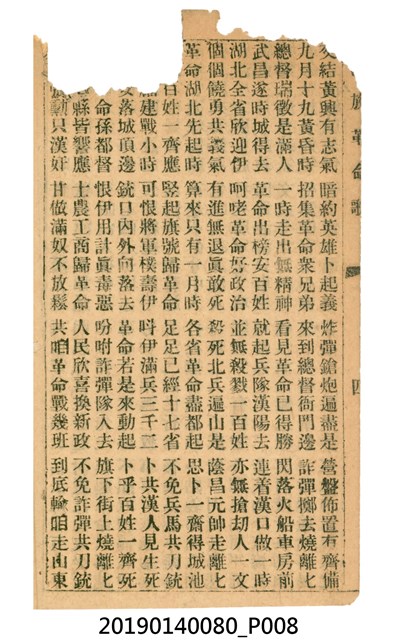 族革命歌 四
結黃興有志氣 暗約英雄卜起義 炸彈鎗炮遍盡是 營盤佈置有齊備
九月十九黃昏時 招集革命衆兄弟 來到總督衙門邊 詐彈擲去燒離七
總督瑞徵是滿人 一時走出無精神 看見革命已得勝 閃落火船車房前
武昌遂時城得去 革命出榜安百姓 就起兵隊漢陽去 連着漢口做一時
湖北全省欣迎伊 呵咾革命好政治 並無殺戮一百姓 亦無搶刧人一文
個個饒勇共義氣 有進無退眞敢死 殺死北兵遍山是 蔭昌元帥走離七
革命湖北先起時 算來只有一月時 各省革命盡都起 思卜一齋得城池
百姓一齊應 竪起旗號歸革命 足足已經十七省 不免兵馬共刀銃
建戰小時 可恨將軍樸壽伊 吽伊滿兵三千二 卜共漢人見生死
落城頂邊 銃口內外向落去 革命若是來動起 卜乎百姓一齊死
命孫都督 恨伊用計眞毒惡 吩咐詐彈隊入去 旗下街上燒離七
縣皆響應 士農工商歸革命 人民欣喜換新政 不免詐彈共刀銃
動只漢奸 甘做滿奴不放鬆 共咱革命戰幾班 到底輸咱走山東
20190140080_P008